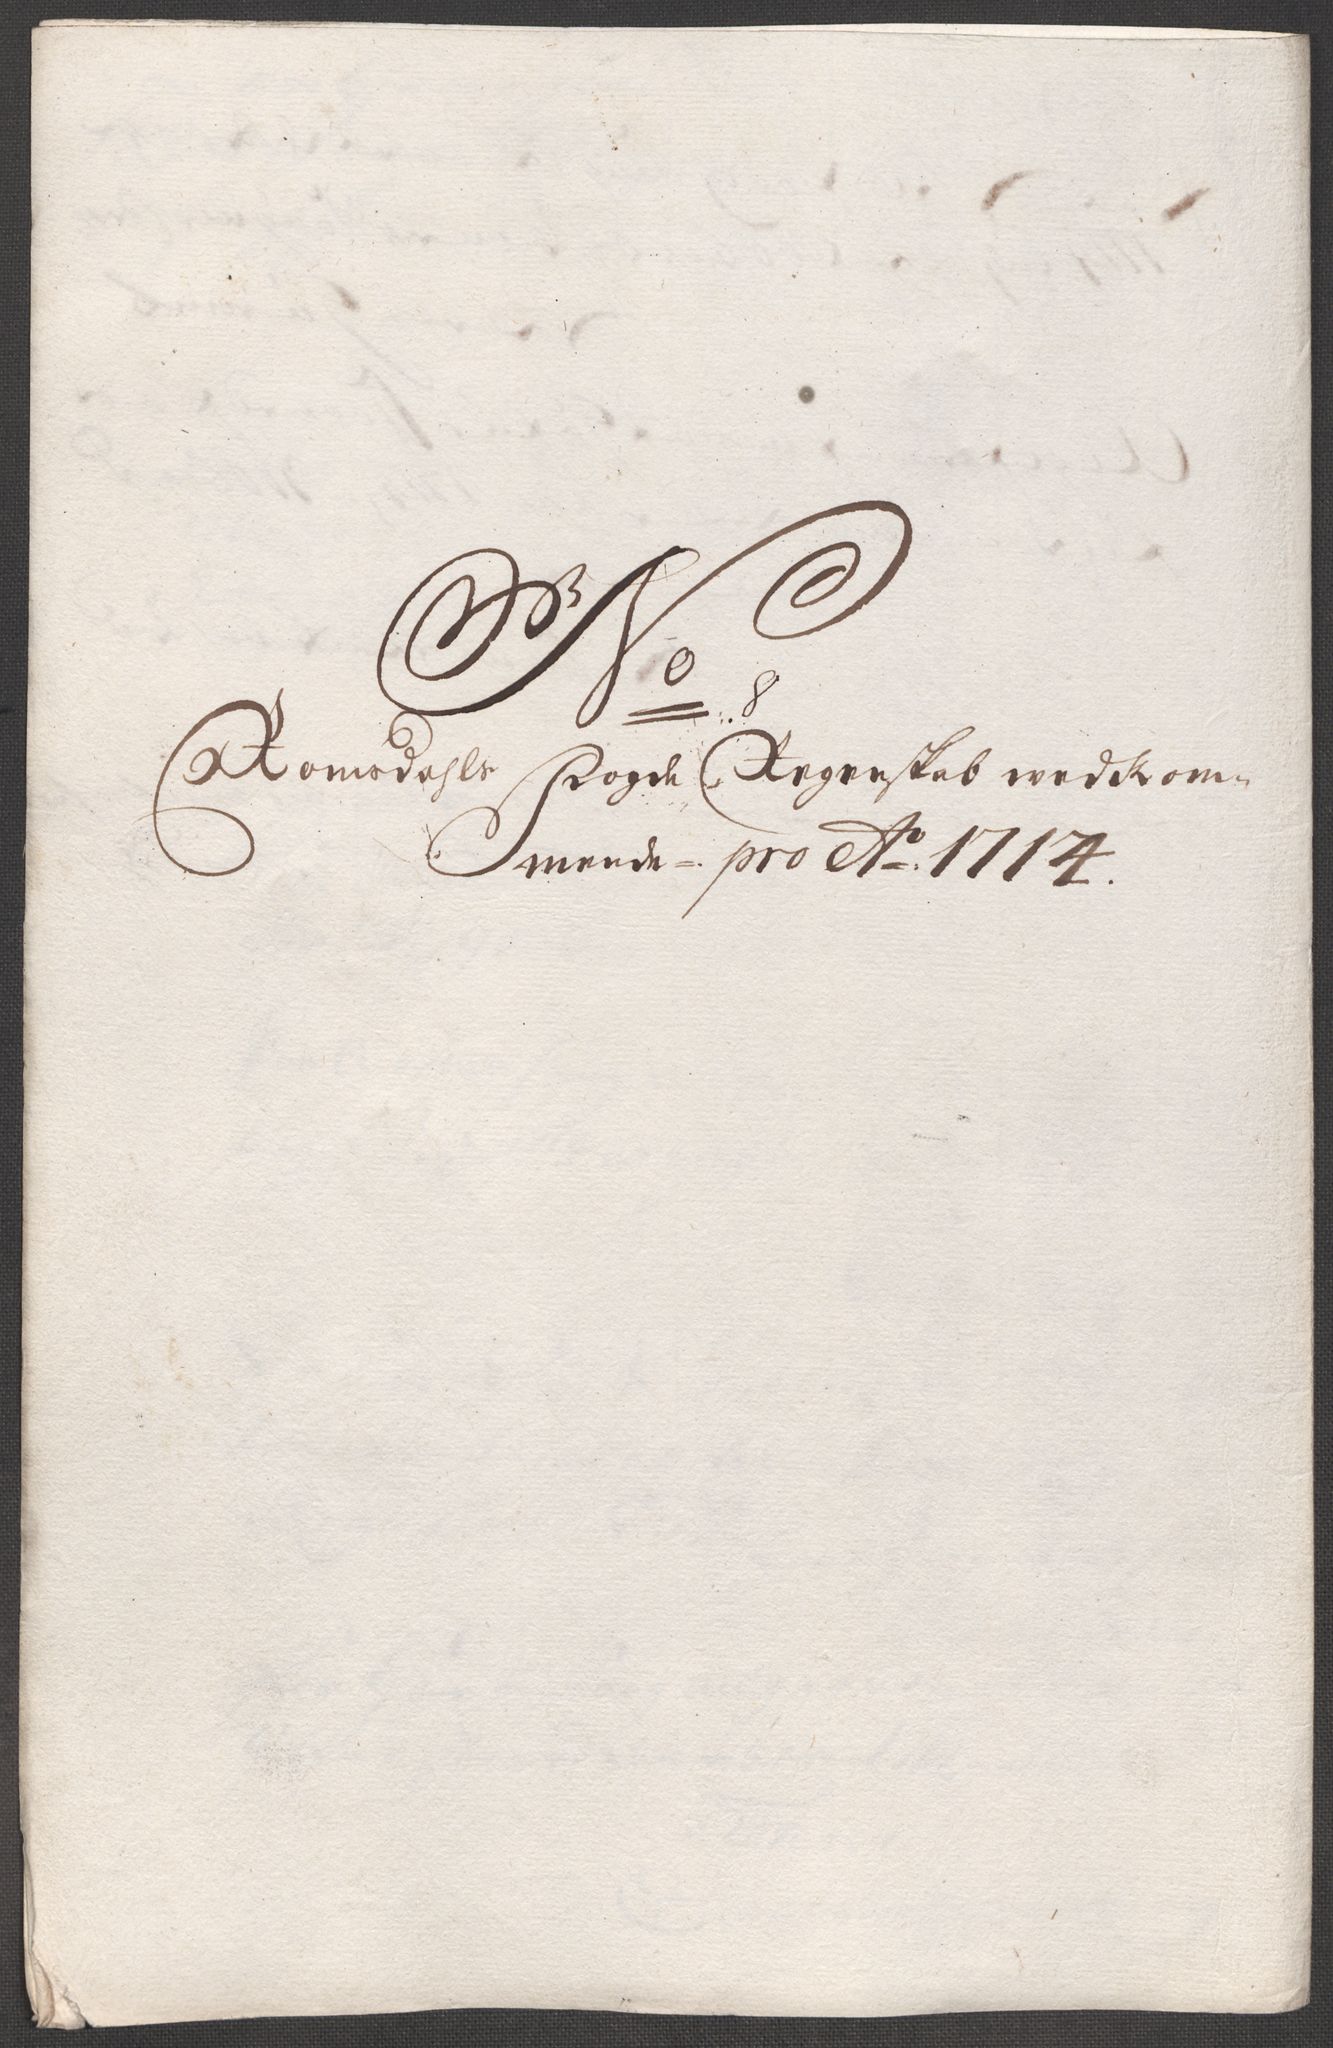 No 8
Romsdahls Fogde Regenskab wedkom=
mende =. pro Ao. 1714.